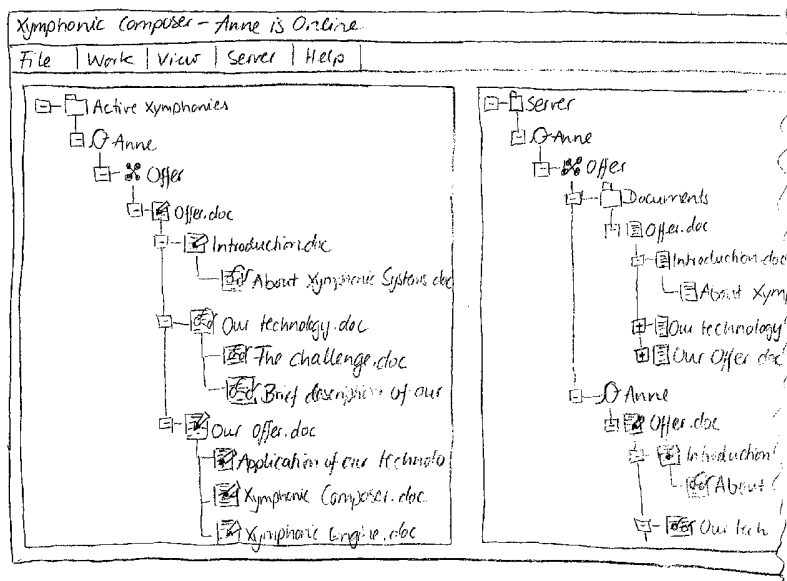 Xymphonic Composer - Anne is Online
File Work View Server Help
Active Xymphonies
Anne
Offer
Offer.doc
Introduction.doc
About Xymphonic Systems.doc
Our technology.doc
The challenge.doc
Brief description of our
Our offer.doc
Application of our technolo
Xymphonic Composer.doc
Xymphonic Engine.doc
Server
Anne
Offer
Documents
Offer.doc
Introduction.doc
About Xym
Our technology
Our Offer doc
Anne
Offer.doc
Introduction
About
Our tech